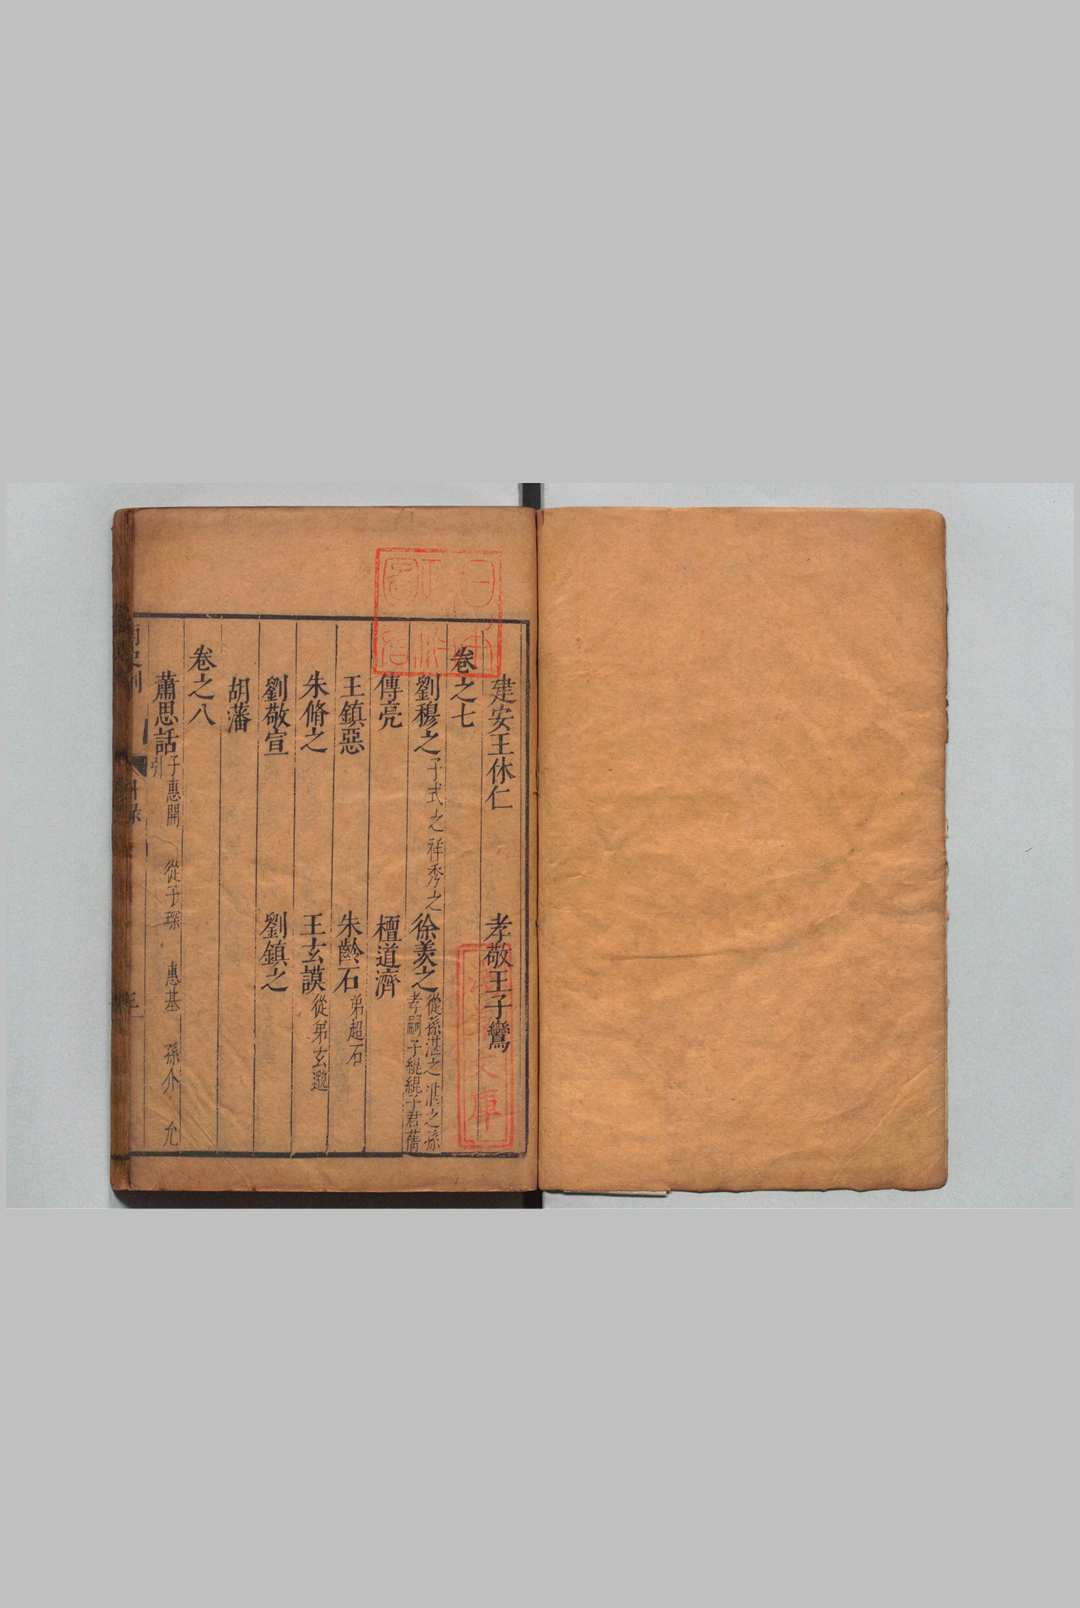 建安王休仁 孝敬王子鸞
卷之七
劉穆之 子式之 祥 秀之 徐羨之 從孫湛之 湛之孫 孝嗣 子緄 緄子君蒨
傅亮 檀道濟
王鎮惡 朱齡石 弟超石
朱脩之 王玄謨 從弟玄邈
劉敬宣 劉鎮之
胡藩
卷之八
蕭思話 子惠開 從子琛 惠基 孫介 允 引